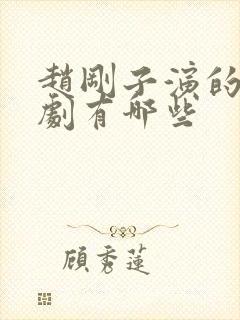 趙剛子演的
劇有哪些
顧秀蓮